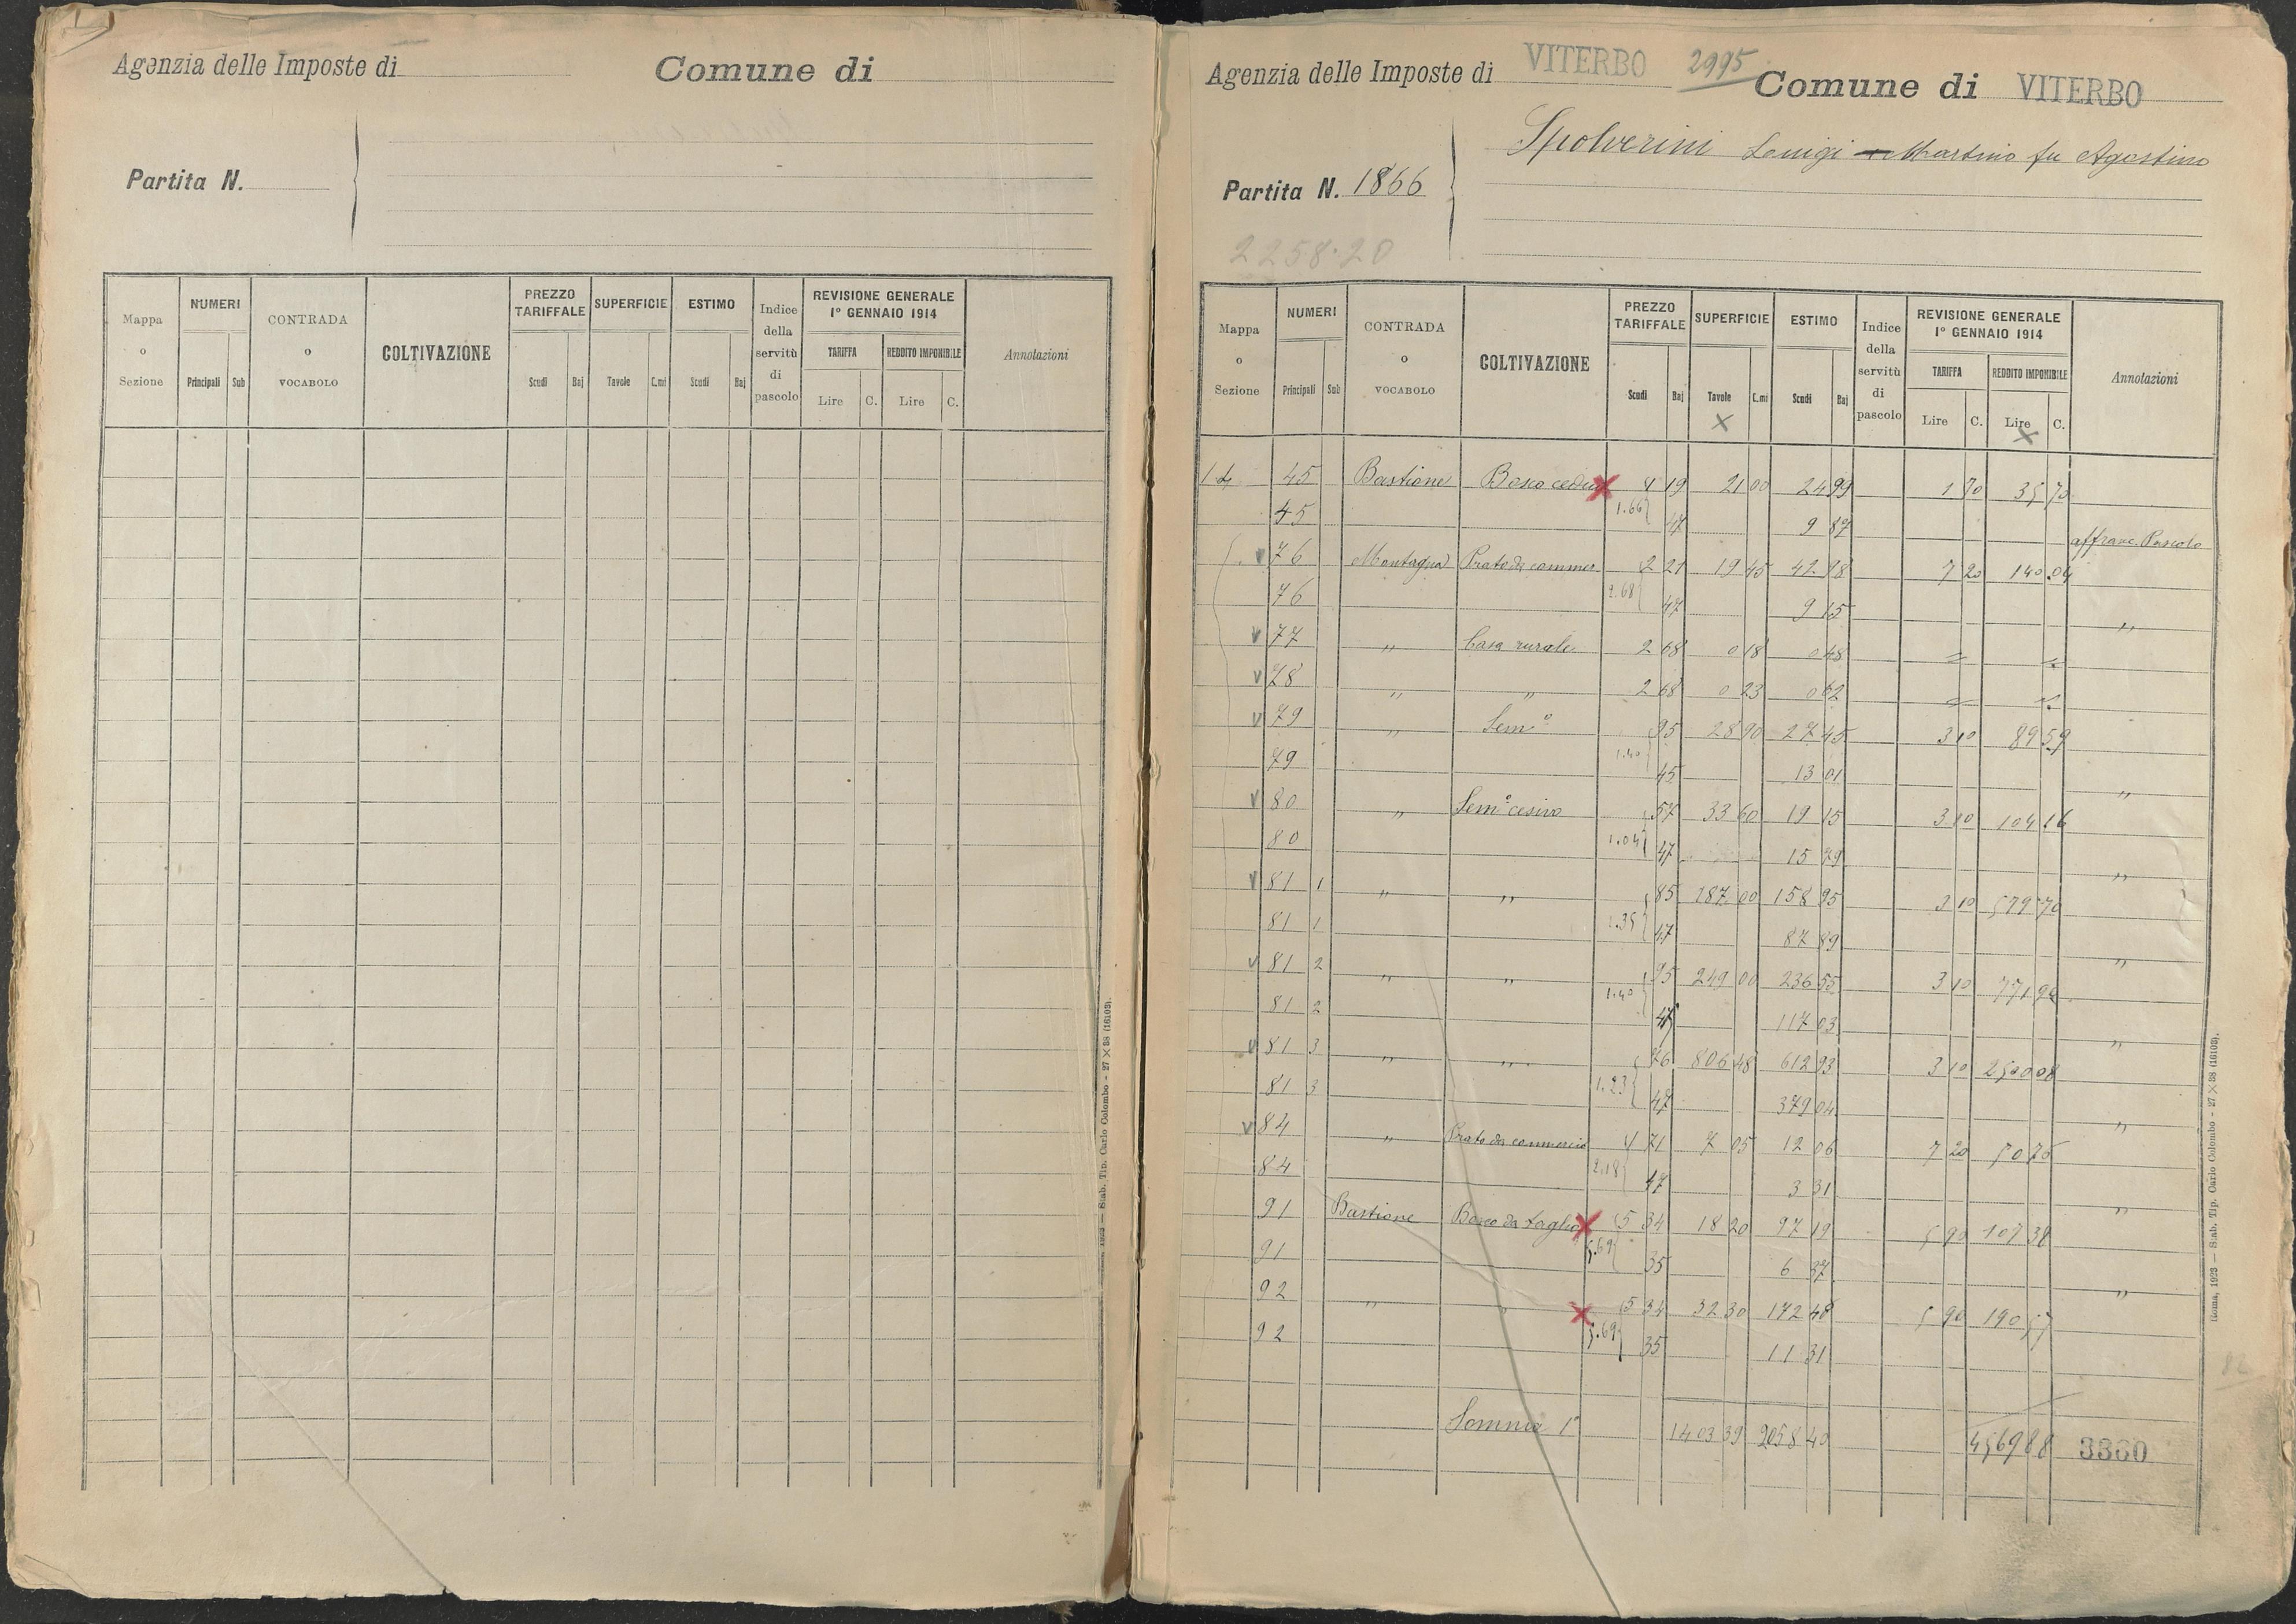 Agenzia delle Imposte di
Comune di
Partita N.
Mappa o Sezione
NUMERI
Principali Sub
CONTRADA o VOCABOLO
COLTIVAZIONE
PREZZO TARIFFALE
Scudi Baj
SUPERFICIE
Tavole C.mi
ESTIMO
Scudi Baj
Indice della servitù di pascolo
REVISIONE GENERALE 1° GENNAIO 1914
TARIFFA REDDITO IMPONIBILE
Lire C. Lire C.
Annotazioni
1923 — Stab. Tip. Carlo Colombo - 27 × 38 (16103).
Agenzia delle Imposte di VITERBO 2995
Comune di VITERBO
Spolverini Luigi Martino fu Agostino
Partita N. 1866
2258.20
Mappa o Sezione
NUMERI
Principali Sub
CONTRADA o VOCABOLO
COLTIVAZIONE
PREZZO TARIFFALE
Scudi Baj
SUPERFICIE
Tavole C.mi
ESTIMO
Scudi Baj
Indice della servitù di pascolo
REVISIONE GENERALE 1° GENNAIO 1914
TARIFFA REDDITO IMPONIBILE
Lire C. Lire C.
Annotazioni
14 45 Bastione Bosco ceduo 1 19 21 00 24 99 1 70 35 70
45 1.66 47 9 87
affranc. Pascolo
v 76 Montagna Prato da commer 2 21 19 45 42 98 7 20 140 04
76 2.68 47 9 15 "
v 77 " Casa rurale 2 68 0 18 0 48 = =
v 78 " " 2 68 0 23 0 62 = =
v 79 " Sem° 95 28 90 27 45 3 10 89 59
79 1.40 45 13 01 "
v 80 " Sem° cesivo 57 33 60 19 15 3 10 104 16
80 1.04 47 15 79 "
v 81 1 " " 85 187 00 158 95 3 10 579 70
81 1 1.35 47 87 89 "
v 81 2 " " 95 249 00 236 55 3 10 771 90
81 2 1.40 47 117 03 "
v 81 3 " " 76 806 48 612 93 3 10 2500 08
81 3 1.23 47 379 04 "
v 84 " Prato da commercio 1 71 7 05 12 06 7 20 50 76
84 2.18 47 3 31 "
91 Bastione Bosco da taglio 5 34 18 20 97 19 5 90 107 38
91 5.69 35 6 37 "
92 " " 5 34 32 30 172 48 5 90 190 57
92 5.69 35 11 31
Somma 1ª 1403 39 2058 40 4569 88 3360
82
Roma, 1923 — Stab. Tip. Carlo Colombo - 27 × 38 (16103).